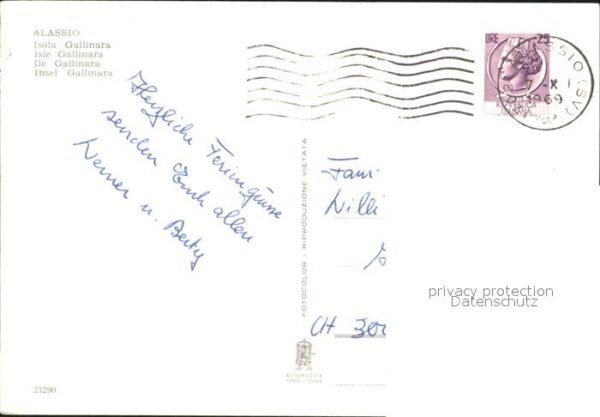 ALASSIO
Isola Gallinara
Isle Gallinara
Ile Gallinara
Insel Gallinara
Herzliche Feriengrüsse
senden Euch allen
Werner u. Betty
LIRE 25
ALASSIO (SV)
-X
1969
FOTOCOLOR - RIPRODUZIONE VIETATA
Fam.
Willi
CH 300
privacy protection
Datenschutz
ALTEROCCA
TERNI - ITALY
21290